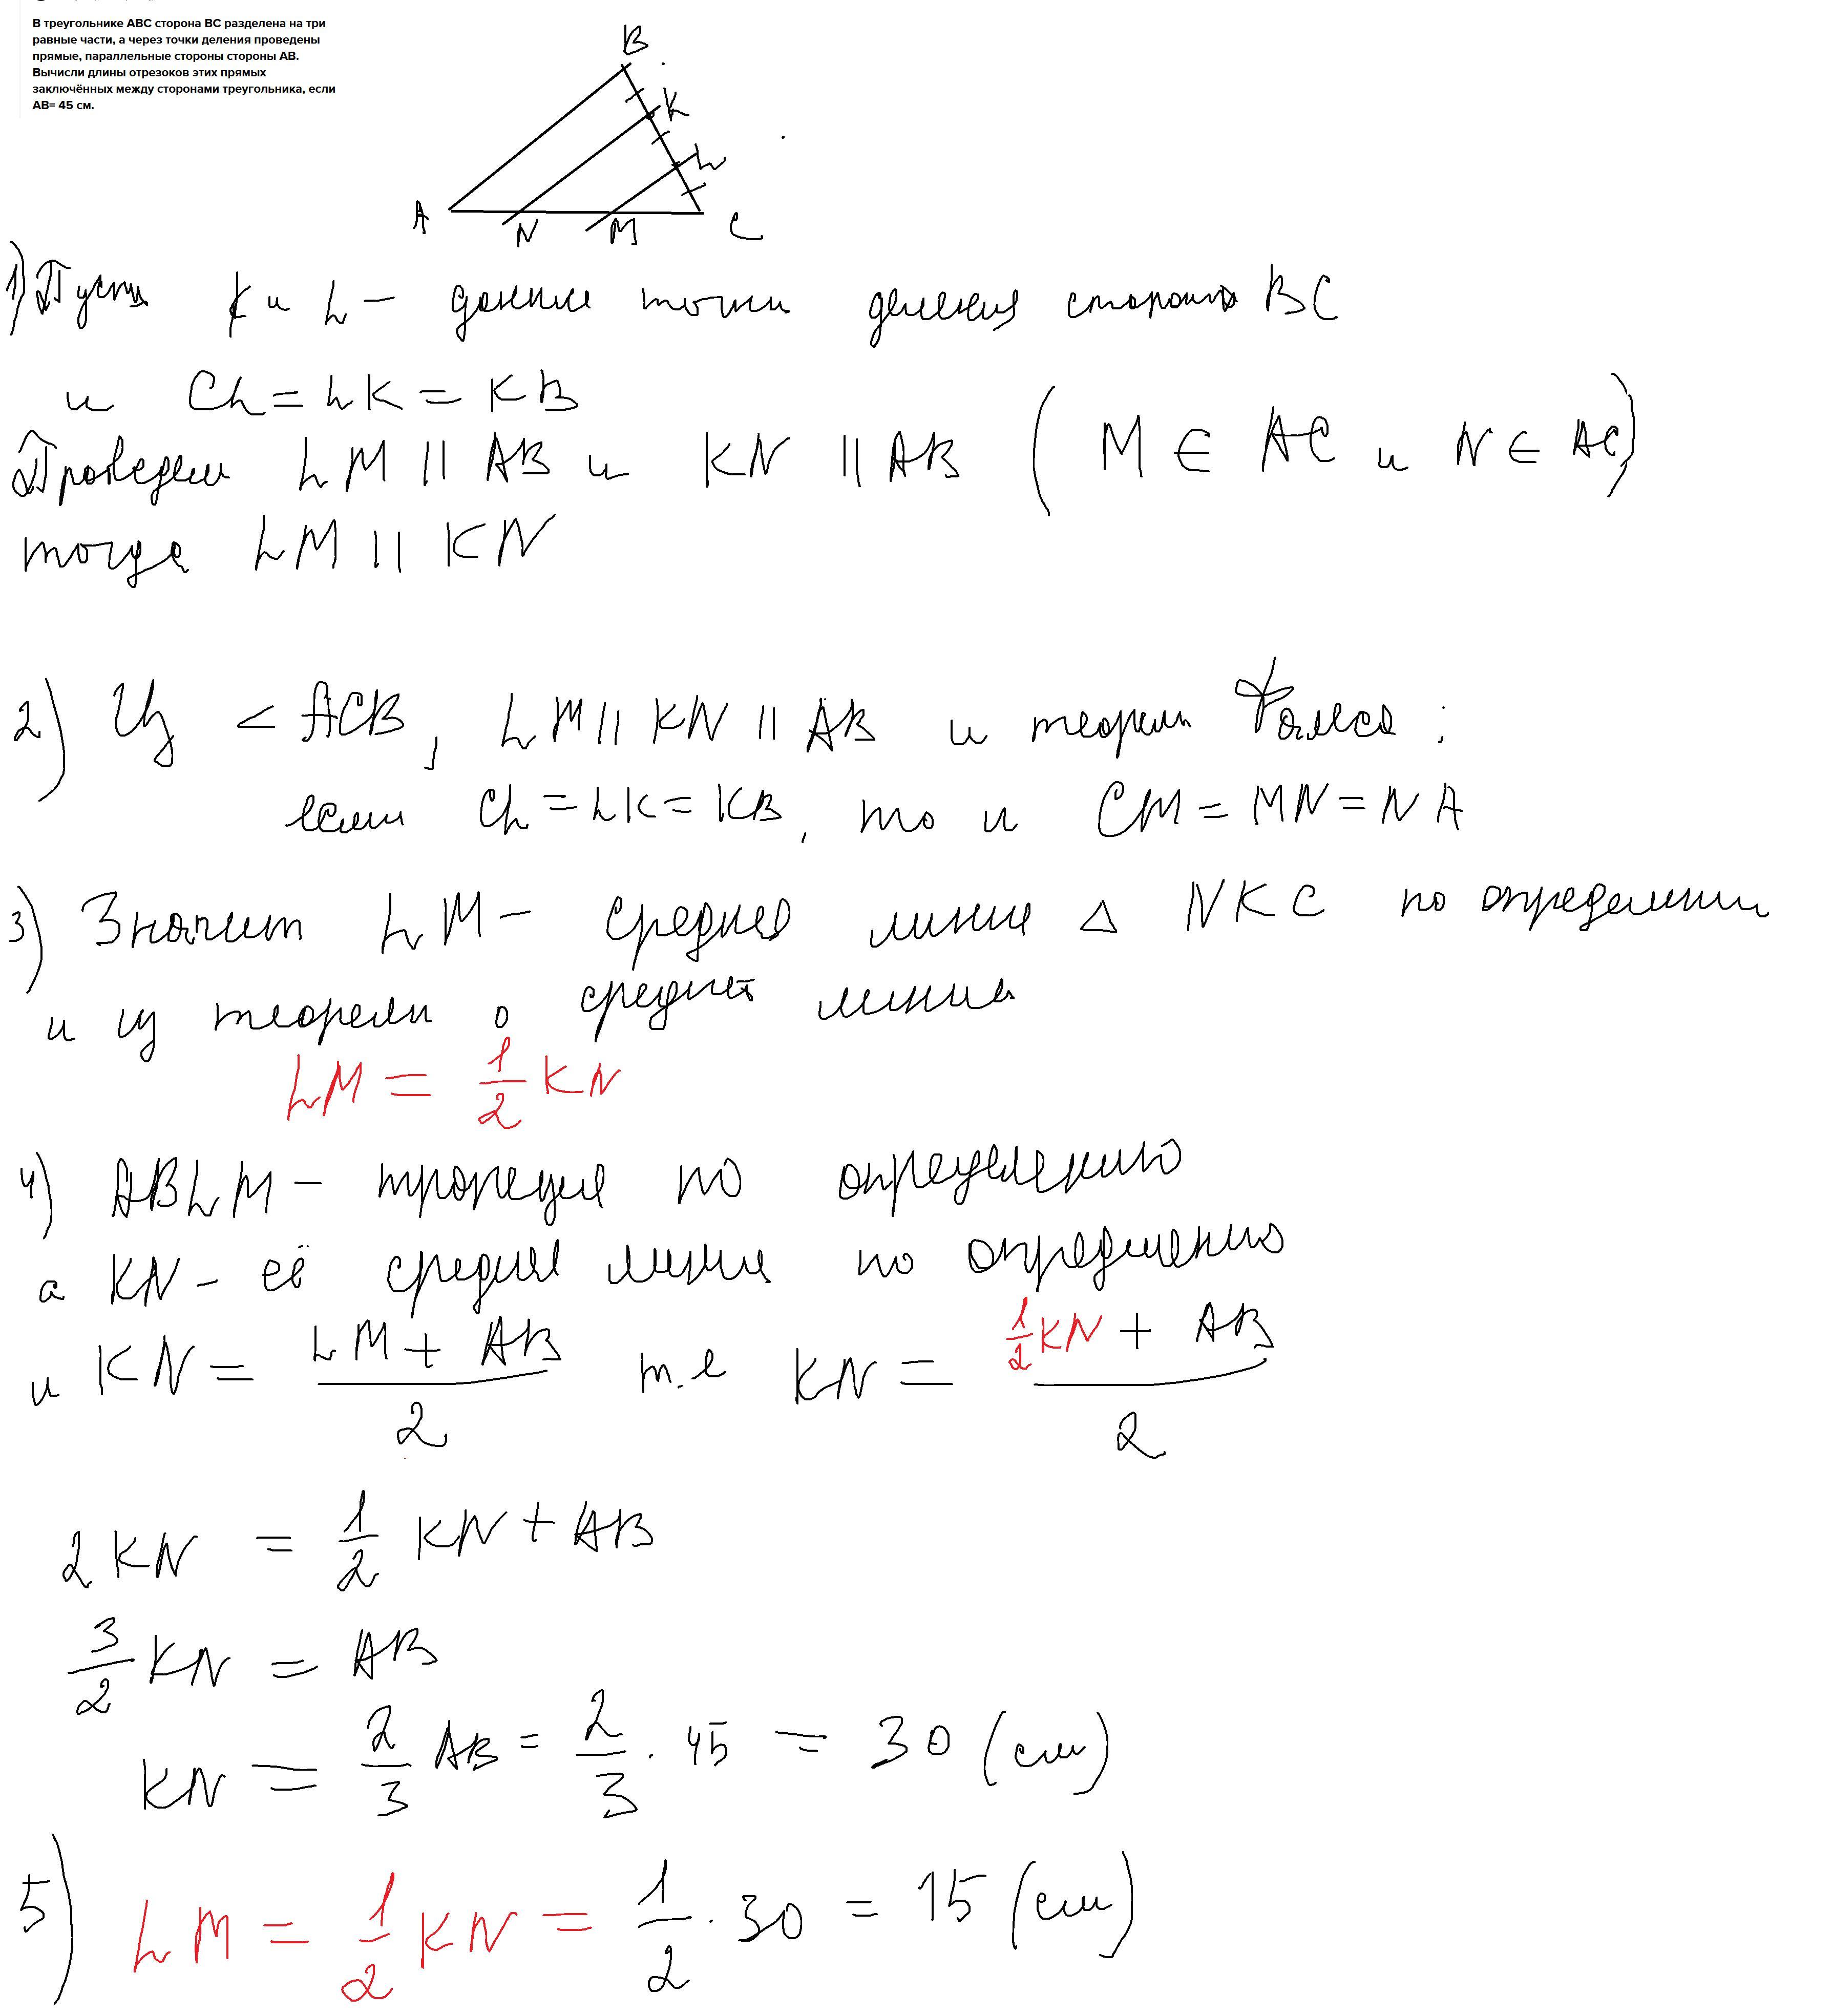 В треугольнике ABC сторона BC разделена на три
равные части, а через точки деления проведены
прямые, параллельные стороны стороны AB.
Вычисли длины отрезоков этих прямых
заключённых между сторонами треугольника, если
AB= 45 см.
B
K
L
A N M C
1) Пусть K и L – данные точки деления стороны BC
и CL = LK = KB
Проведем LM || AB и KN || AB (M ∈ AC и N ∈ AC)
тогда LM || KN
2) Из < ACB, LM || KN || AB и теоремы Фалеса :
если CL = LK = KB, то и CM = MN = NA
3) Значит LM – средняя линия Δ NKC по определении
и из теоремы о средней линии
LM = 1/2 KN
4) ABLM – трапеция по определению
а KN – её средняя линия по определению
и KN = (LM + AB)/2 т.е KN = (1/2 KN + AB)/2
2KN = 1/2 KN + AB
3/2 KN = AB
KN = 2/3 AB = 2/3 · 45 = 30 (см)
5) LM = 1/2 KN = 1/2 · 30 = 15 (см)